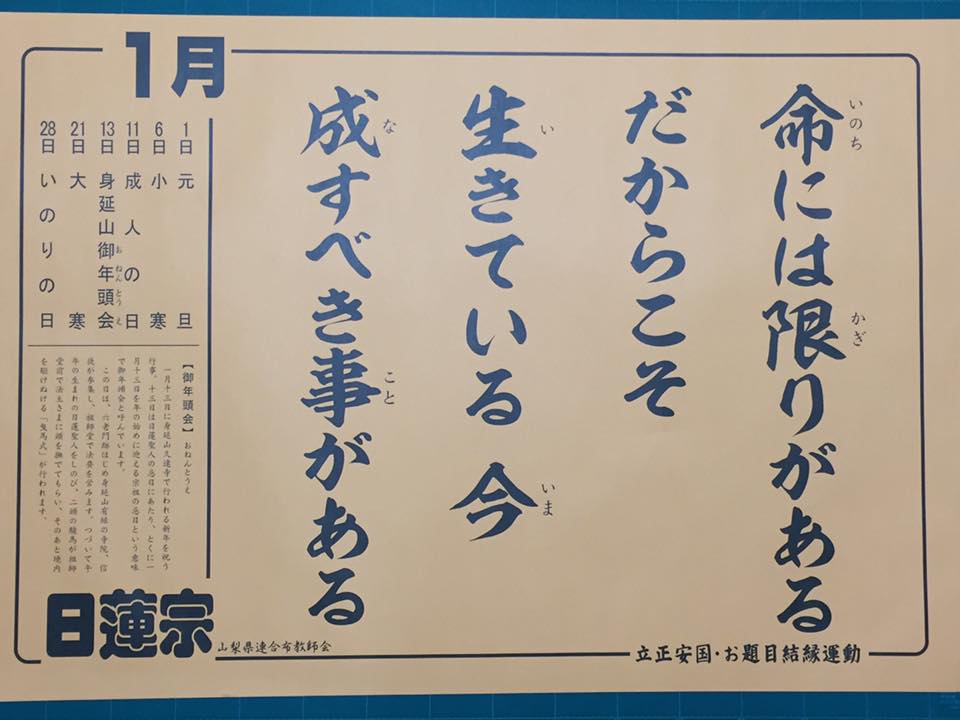 命には限りがある
いのち
かぎ
だからこそ
生きている 今
い
いま
成すべき事がある
な
こと
1月
1日 元旦
6日 小寒
11日 成人の日
13日 身延山御年頭会
おねんとうえ
21日 大寒
28日 いのりの日
【御年頭会】 おねんとうえ
一月十三日に身延山久遠寺で行われる新年を祝う
行事。十三日は日蓮聖人の忌日にあたり、とくに一
月十三日を年の始めに迎える宗祖の忌日という意味
で御年頭会と呼んでいます。
この日は、六老門跡はじめ身延山有縁の寺院、信
徒が参集し、祖師堂で法要を営みます。つづいて午
年の生まれの日蓮聖人をしのび、二頭の駿馬が祖師
堂前で法主さまに頭を撫でてもらい、そのあと境内
を駆けぬける「曳馬式」が行われます。
日蓮宗
山梨県連合布教師会
立正安国・お題目結縁運動